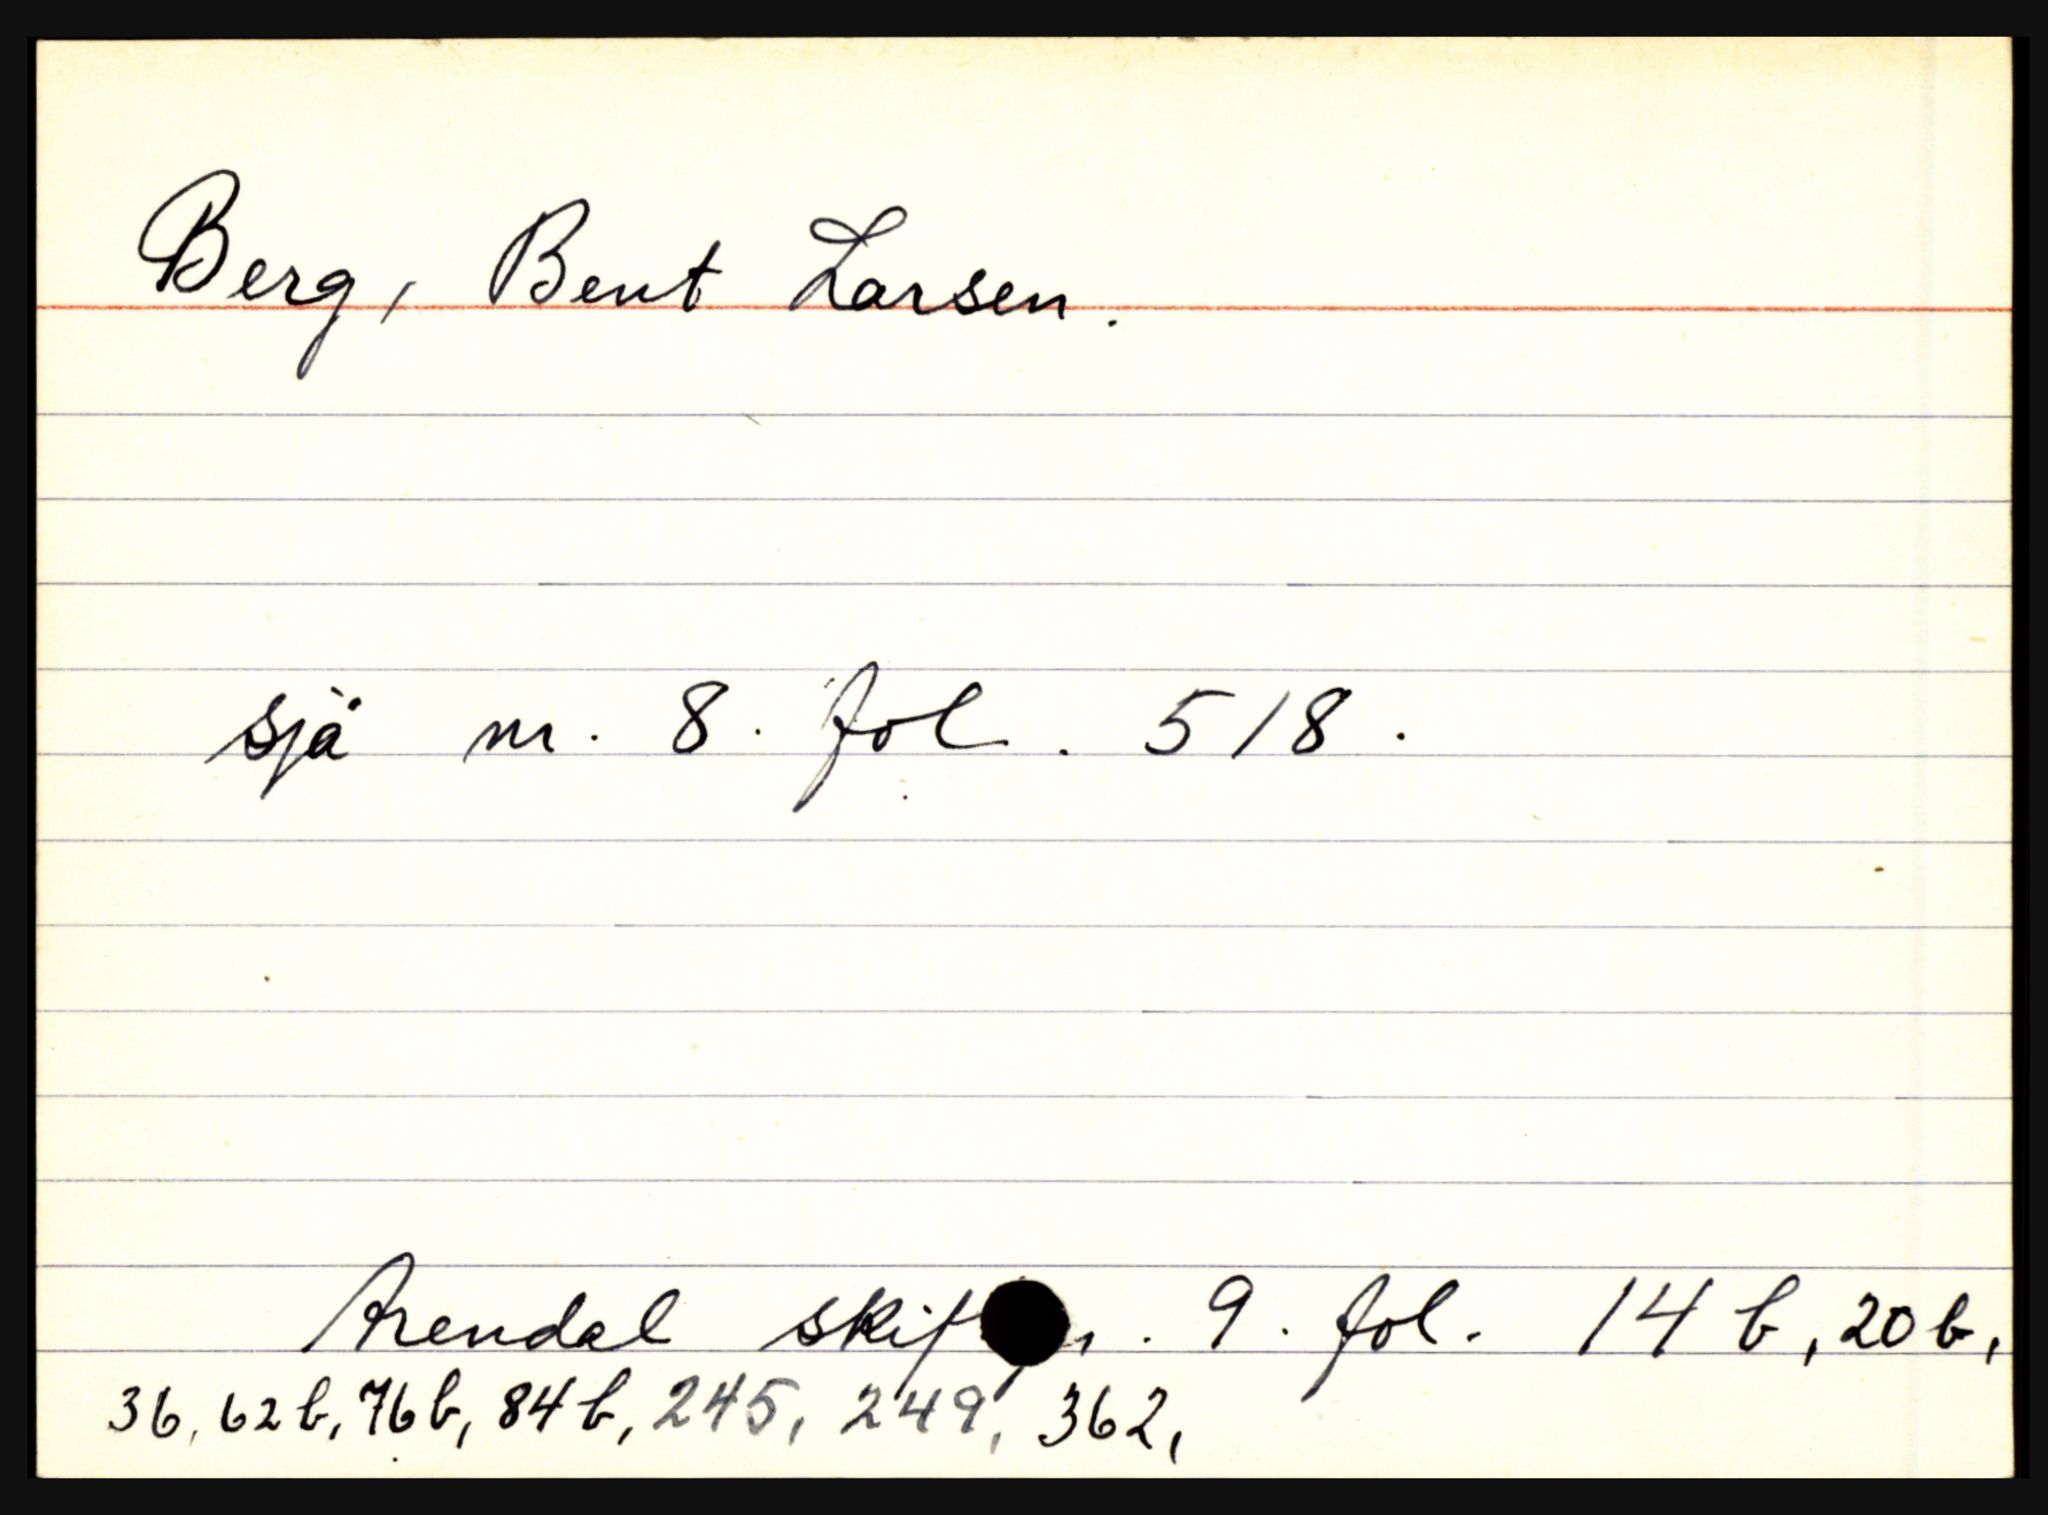 Berg, Bent Larsen.
sjå nr. 8. fol. 518.
Arendal . 9. fol. 14 b, 20 b,
36, 62 b, 76 b, 84 b, 245, 249, 362,